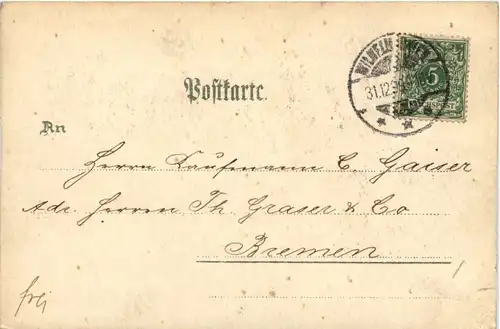 WILHELMSHAVEN
31.12.
5
Postkarte.
An
Herrn Kaufmann C. Gaiser
Adr. Herren Th. Graser & Co
Bremen
frei